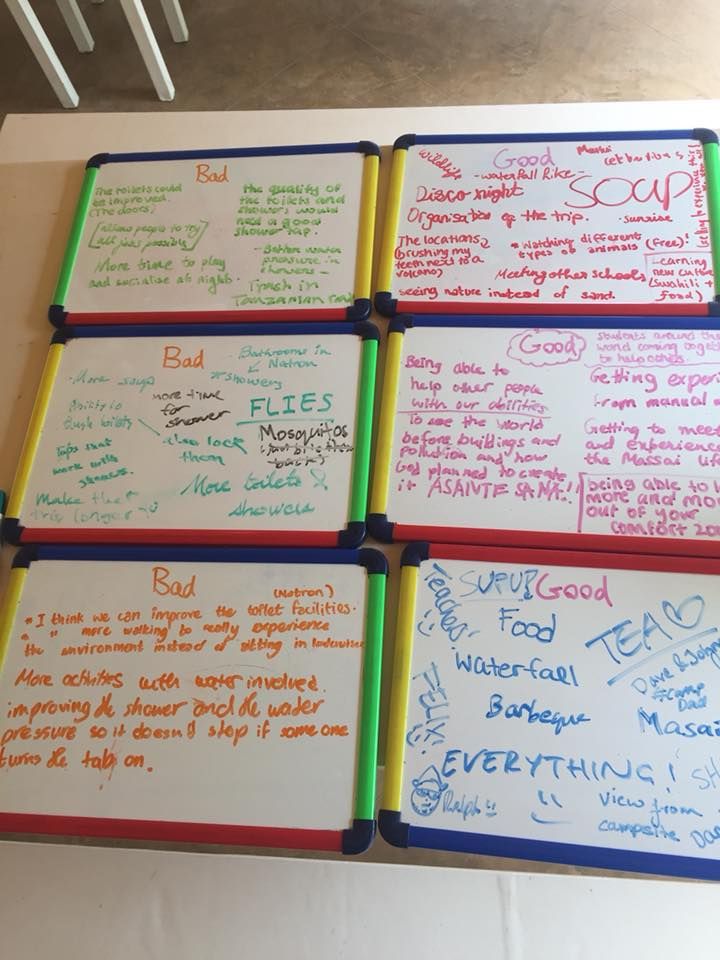 Bad
The toilets could
be improved.
(The doors)
[allow people to try
all jobs possible]
More time to play
and socialise at night.
the quality of
the toilets and
showers would
need a good
shower tap.
- Better water
pressure in
showers -
Trash in
Tanzanian
Good
Wildlife
- waterfall hike -
Maasai
celebrations
Disco night
SOUP
Organisation of the trip.
sunrise
The locations
(brushing my
teeth next to a
volcano)
* Watching different
types of animals
(free)!
Meeting other schools
Learning
new culture
(Swahili +
food)
seeing nature instead of sand.
Bad
Bathrooms in
Natron
showers
- More soup
more time
for
shower
FLIES
Ability to
flush toilets
also lock
them
Mosquitos
Taps that
work with
showers.
More toilets &
showers
Make the
trip longer
Good
students around the
world coming together
to help others.
Being able to
help other people
with our abilities
To see the world
before buildings and
pollution and how
God planned to create
it ASANTE SANA!!
Getting experi
from manual
Getting to mee
and experience
the Massai lif
being able to
more and mo
out of your
comfort zo
Bad
(Natron)
* I think we can improve the toilet facilities.
" " more walking to really experience
the environment instead of sitting in
More activities with water involved.
improving the shower and the water
pressure so it doesn't stop if some one
turns the tab on.
SUPU!
Good
Teachers
Food
TEA
Waterfall
Dave & John
#camp
Dad
Barbeque
Masai
FELIX
EVERYTHING!
Ralph
view from
campsite